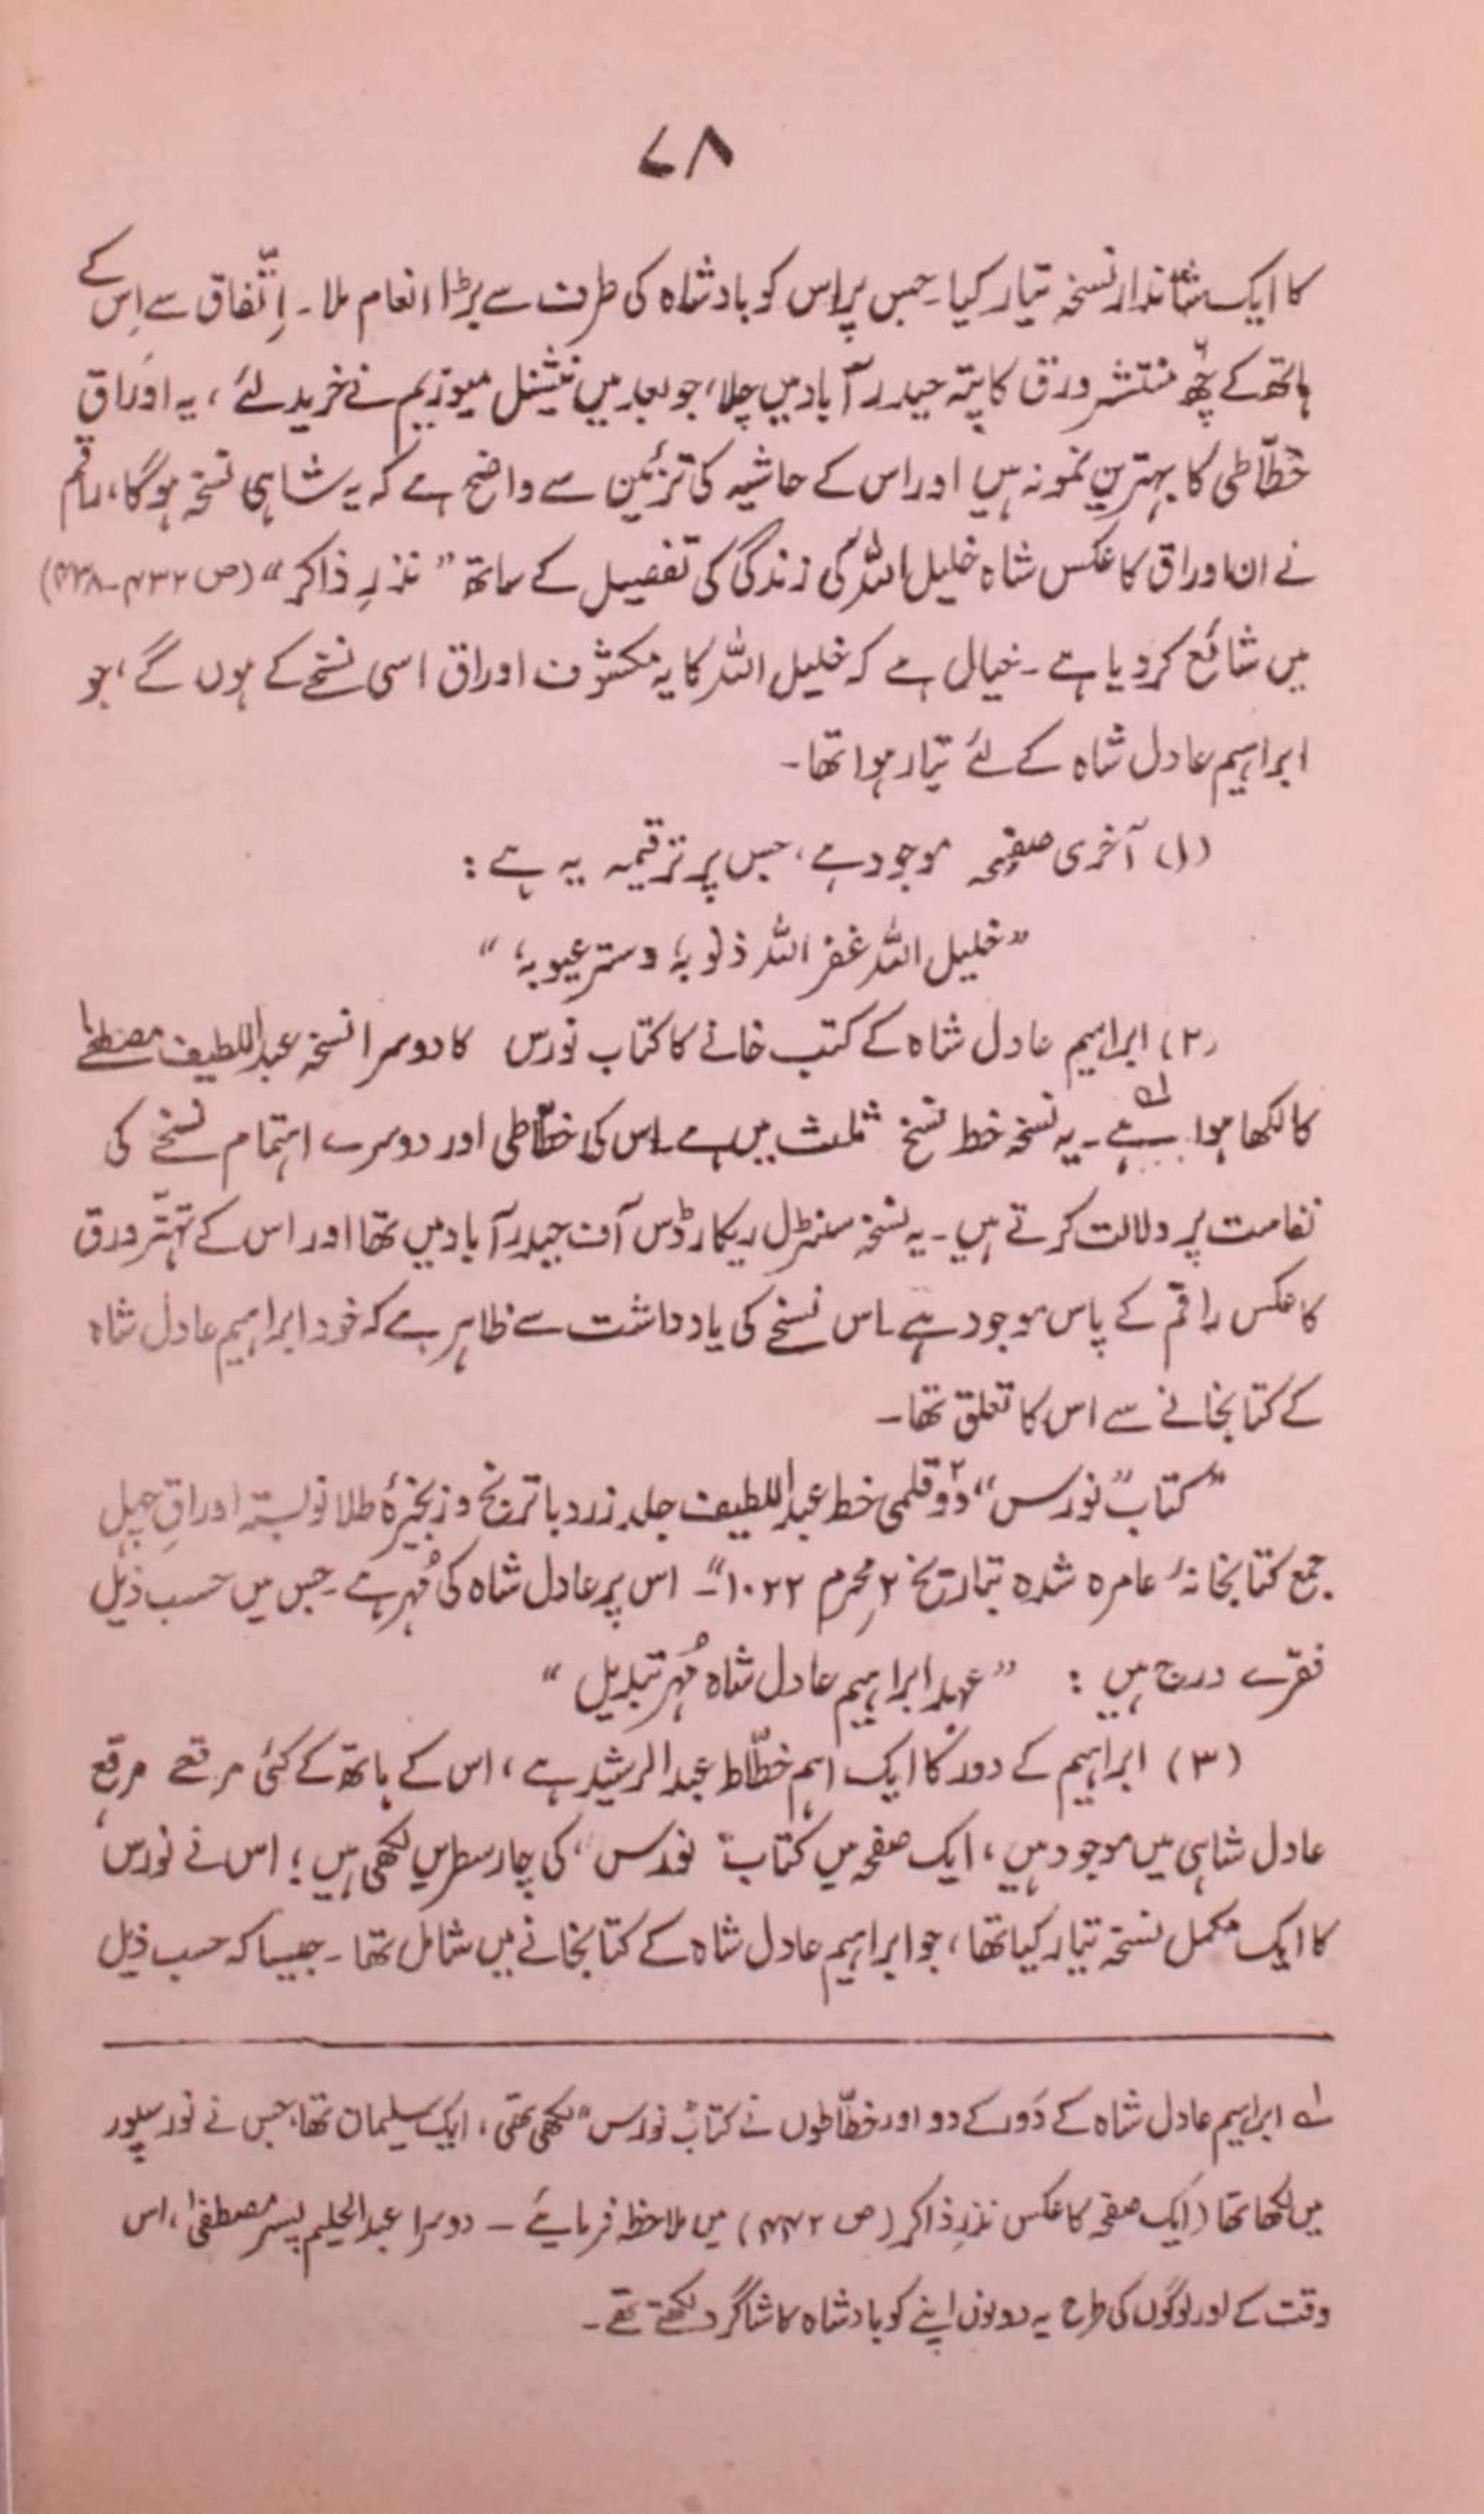 ۷۸
کا ایک شاندار نسخہ تیار کیا۔ جس پر اس کو بادشاہ کی طرف سے بڑا انعام ملا۔ اِتّفاق سے اِس کے
ہاتھ کے چھ منتشر ورق کا پتہ حیدر آباد میں چلا، جو بعد میں نیشنل میوزیم نے خرید لئے، یہ اوراق
خطّاطی کا بہترین نمونہ ہیں اور اس کے حاشیہ کی تزئین سے واضح ہے کہ یہ شاہی نسخہ ہوگا، راقم
نے ان اوراق کا عکس شاہ خلیل اللہ کی زندگی کی تفصیل کے ساتھ ”نذرِ ذاکر“ (ص ۴۳۲-۴۳۸)
میں شائع کر دیا ہے۔ خیال ہے کہ خلیل اللہ کا یہ مکشوف اوراق اسی نسخے کے ہوں گے، جو
ابراہیم عادل شاہ کے لئے تیار ہوا تھا۔
(۱) آخری صفحہ موجود ہے، جس پر ترقیمہ یہ ہے :
”خلیل اللہ غفر اللہ ذنوبہٗ وستر عیوبہٗ“
(۲) ابراہیم عادل شاہ کے کتب خانے کا کتاب نورس کا دوسرا نسخہ عبداللطیف مصطفےٰ
کا لکھا ہوا ہے۔ؔ۱ یہ نسخہ خط نسخ ثلث میں ہے۔ اس کی خطّاطی اور دوسرے اہتمام نسخے کی
نفاست پر دلالت کرتے ہیں۔ یہ نسخہ سنٹرل ریکارڈس آف حیدر آباد میں تھا اور اس کے تہتّر ورق
کا عکس راقم کے پاس موجود ہے۔ اس نسخے کی یادداشت سے ظاہر ہے کہ خود ابراہیم عادل شاہ
کے کتابخانے سے اس کا تعلق تھا۔
”کتاب ”نورس“ دو قلمی خط عبداللطیف جلد زرد با ترنج و زنجیرۂ طلا نوبستہ اوراقِ چہل
جمع کتابخانۂ عامرہ شدہ بتاریخ ۲ محرم ۱۰۲۲“۔ اس پر عادل شاہ کی مُہر ہے۔ جس میں حسب ذیل
فقرے درج ہیں : ”عہد ابراہیم عادل شاہ مُہر تبدیل“
(۳) ابراہیم کے دور کا ایک اہم خطّاط عبدالرشید ہے، اس کے ہاتھ کے کئی مرقعے مرقع
عادل شاہی میں موجود ہیں، ایک صفحہ میں کتاب نورس، کی چار سطریں لکھی ہیں؛ اس نے نورس
کا ایک مکمل نسخہ تیار کیا تھا، جو ابراہیم عادل شاہ کے کتابخانے میں شامل تھا۔ جیسا کہ حسب ذیل
ؔ۱ ابراہیم عادل شاہ کے دَور کے دو اور خطّاطوں نے کتاب نورس“ لکھی تھی، ایک سلیمان تھا، جس نے نورسپور
میں لکھا تھا (ایک صفحہ کا عکس نذرِ ذاکر (ص ۴۴۲) میں ملاحظہ فرمائیے۔ دوسرا عبدالحلیم پسر مصطفیٰ، اس
وقت کے اور لوگوں کی طرح یہ دونوں اپنے کو بادشاہ کا شاگرد لکھتے تھے۔